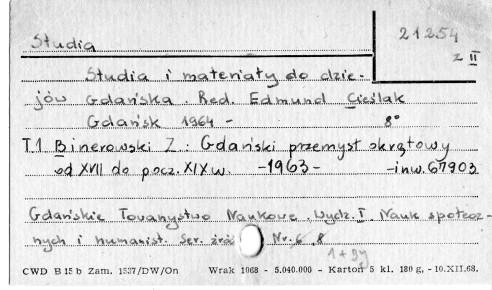 Studia
21254
z II
Studia i materiały do dzie-
jów Gdańska. Red. Edmund Cieślak
Gdańsk 1964 - 8°
T.1 Binerowski Z: Gdański przemysł okrętowy
od XVII do pocz. XIX w. -1963- -inw.67903
Gdańskie Towarzystwo Naukowe. Wydz. I Nauk społecz-
nych i humanist. Ser. źró Nr. 6, 8
1+
CWD B 15 b Zam. 1537/DW/On Wrak 1068 - 5.040.000 - Karton 5 kl. 180 g, - 10.XII.68.